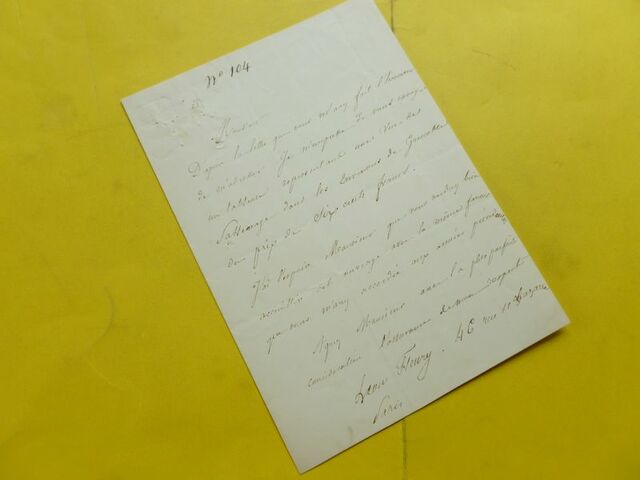 N° 104
Monsieur
D'après la lettre que vous m'avez fait l'honneur
de m'adresser Je m'empresse de vous envoyer
un tableau représentant une Vue de
Sassenage dans les Environs de Grenoble
du prix de Six cents francs.
J'ai l'espoir Monsieur que vous voudrez bien
accueillir cet ouvrage avec la même faveur
que vous m'avez accordée aux années précéd
Agréez Monsieur avec la plus parfaite
considération l'assurance de mon respect
Léon Fleury. 46 rue St Lazare
Paris